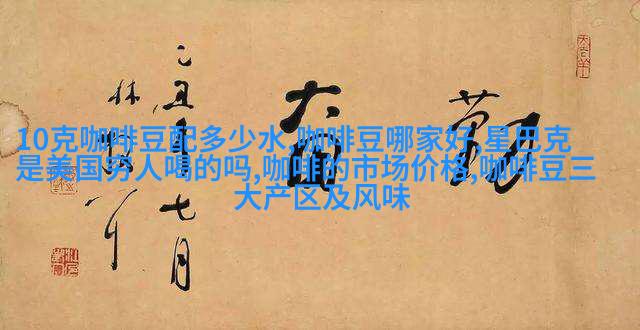 10克咖啡豆配多少水,咖啡豆哪家好,星巴克
是美国穷人喝的吗,咖啡的市场价格,咖啡豆三
大产区及风味
勤
乙丑年七月
林